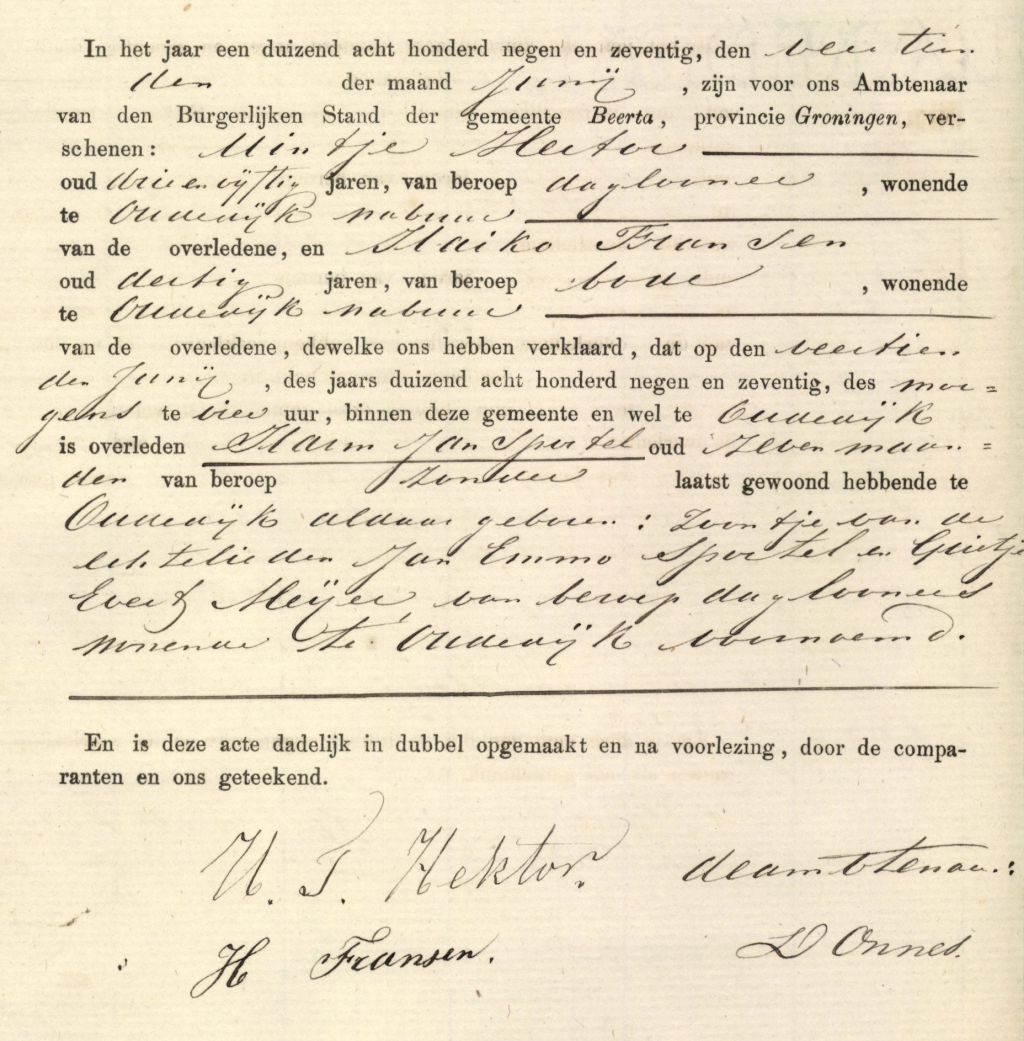 In het jaar een duizend acht honderd negen en zeventig, den veertien
den der maand Junij, zijn voor ons Ambtenaar
van den Burgerlijken Stand der gemeente Beerta, provincie Groningen, ver-
schenen: Hektor
oud drie en vijftig jaren, van beroep daglooner, wonende
te Oudedijk nabuur
van de overledene, en Haiko Fransen
oud dertig jaren, van beroep bode, wonende
te Oudedijk nabuur
van de overledene, dewelke ons hebben verklaard, dat op den veertien
den Junij, des jaars duizend acht honderd negen en zeventig, des mor=
gens te vier uur, binnen deze gemeente en wel te Oudedijk
is overleden Harm Jan Sportel oud zeven maan=
den van beroep zonder laatst gewoond hebbende te
Oudedijk aldaar geboren: zoontje van de
echtelieden Jan Emmo Sportel en Grietje
Everts Meijer, van beroep daglooners
wonende te Oudedijk voornoemd.
En is deze acte dadelijk in dubbel opgemaakt en na voorlezing, door de compa-
ranten en ons geteekend.
Hektor. de ambtenaar:
H Fransen. D Onnes.